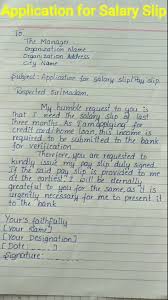 Application for Salary Slip
To,
The Manager,
Organization Name
Organization Address
City Name
Subject: Application for salary slip/Pay slip
Respected Sir/Madam,
My humble request to you is
that I need the salary slip of last
three months. As I am applying for
credit card/home loan, this income is
required to be submitted to the bank
for verification.
Therefore, you are requested to
kindly send my pay slip duly signed.
If the said pay slip is provided to me
at the earliest, I will be eternally
grateful to you for the same, as it is
urgently necessary for me to present it
to the bank.
Your's faithfully
[Your Name]
[Your Designation]
[Date
Signature: